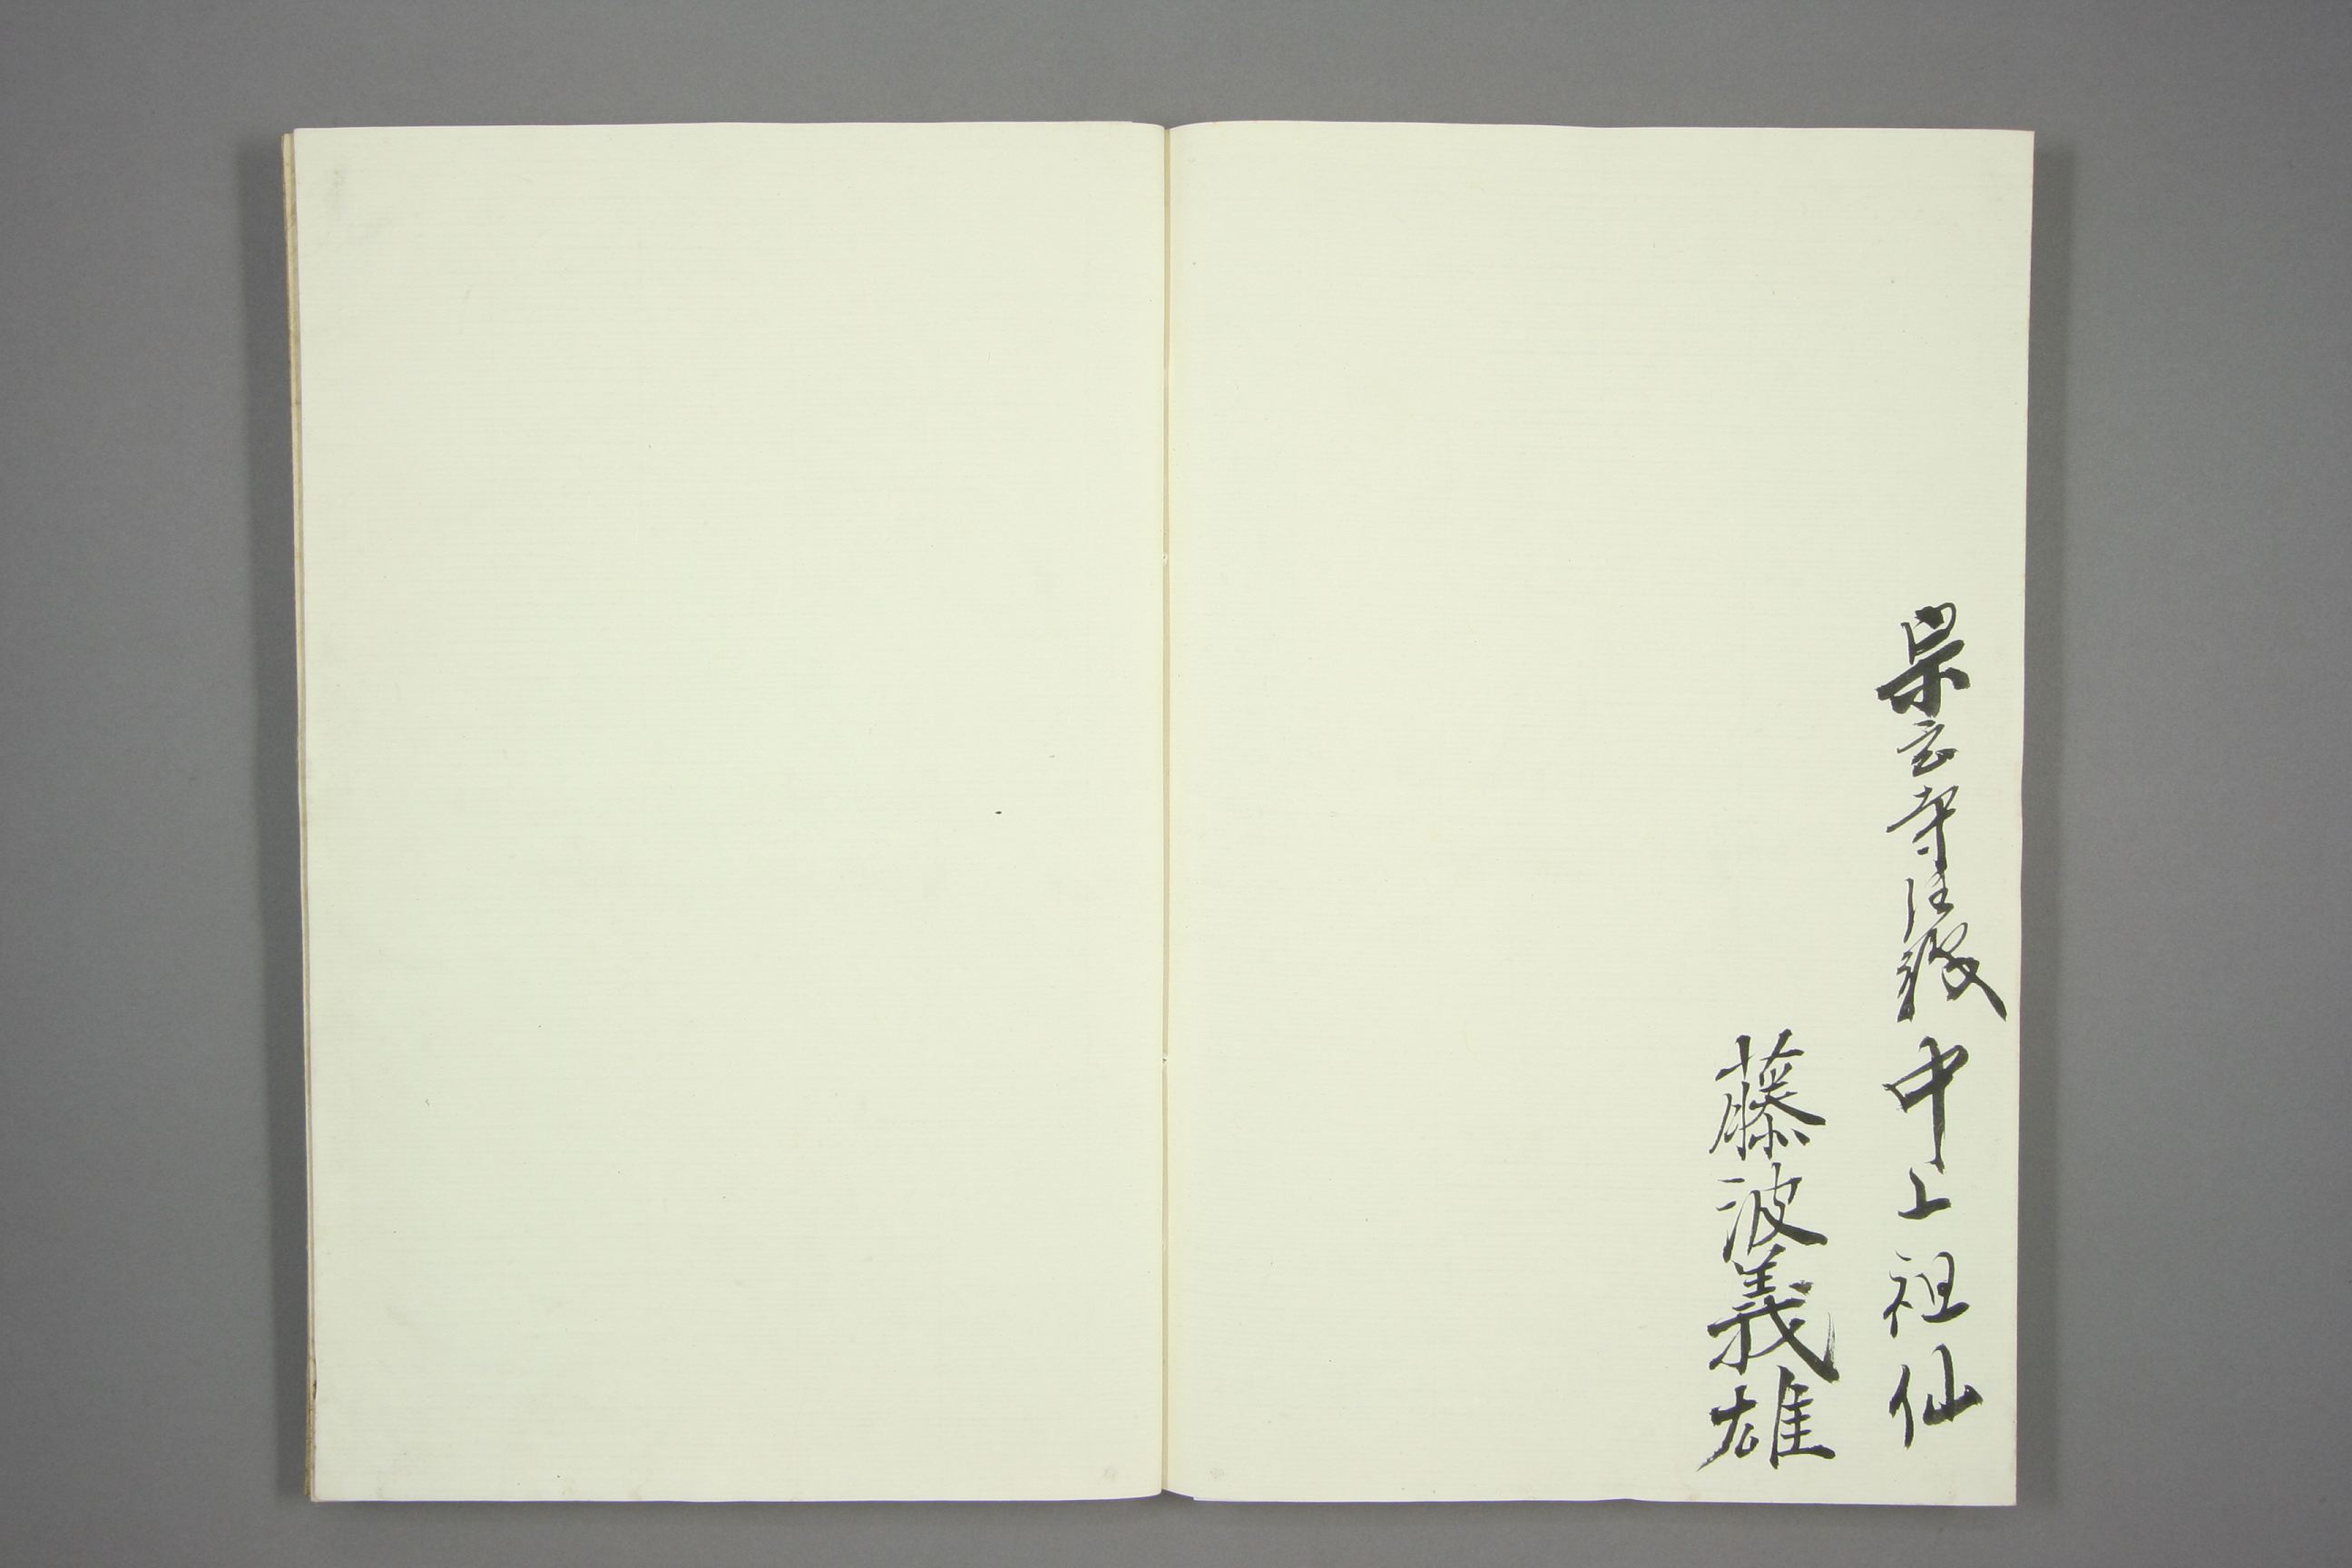 景云寺住職 中上祖仙
藤波義雄